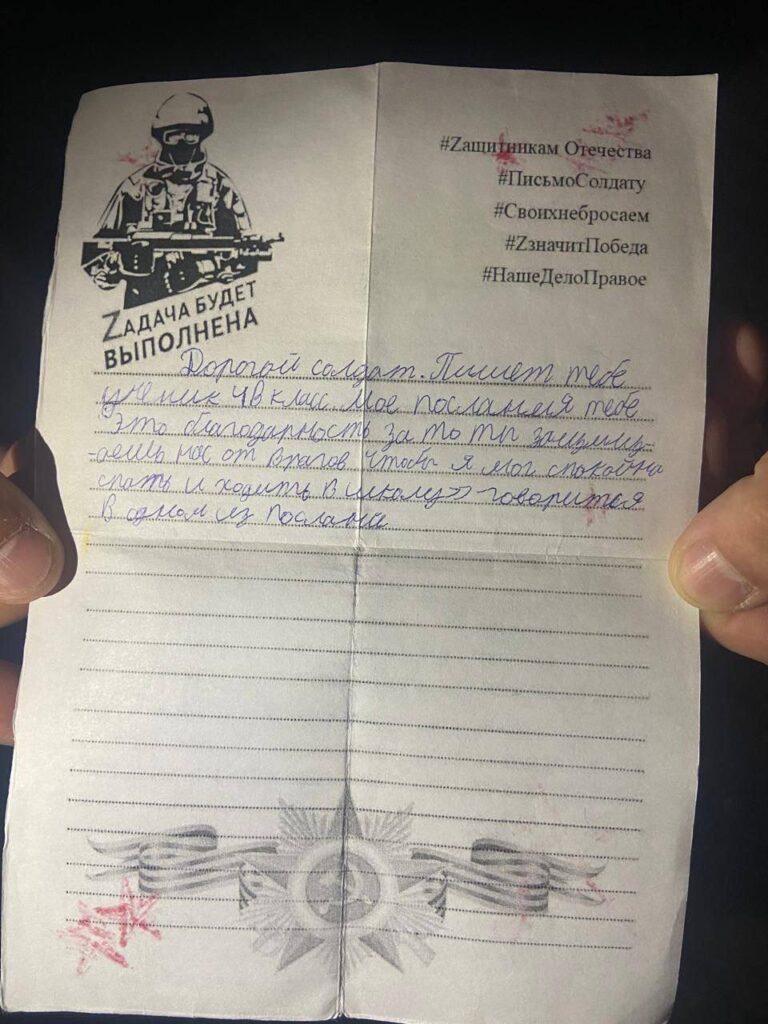 #Zащитникам Отечества
#ПисьмоСолдату
#Своихнебросаем
#ZзначитПобеда
#НашеДелоПравое
ZАДАЧА БУДЕТ
ВЫПОЛНЕНА
Дорогой солдат. Пишет тебе
ученик 4В класс. Мое послания тебе
Это благодарность за то ты защищ-
-аешь нас от врагов чтобы я мог спокойна
спать и ходить в школу>> говорится
в одном из послани